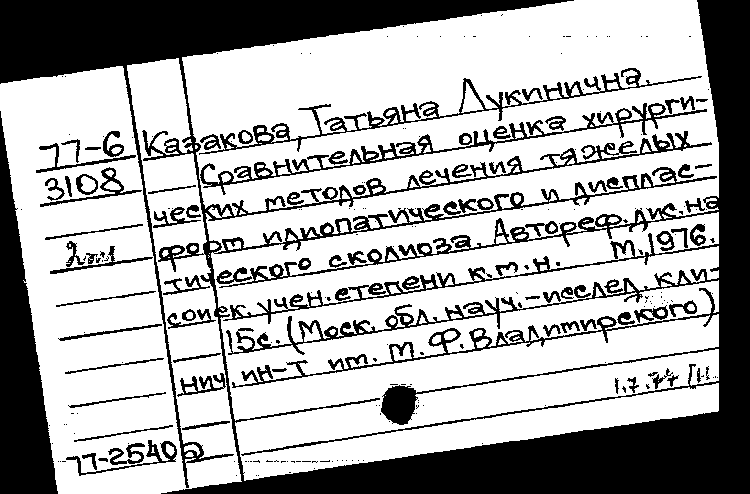 77-6 Казакова, Татьяна Лукинична.
3108 Сравнительная оценка хирурги-
ческих методов лечения тяжелых
форм идиопатического и диспла­с-
тического сколиоза. Автореф. дис. на
соиск. учен. степени к.м.н. М., 1976.
15с. (Моск. обл. науч.-исслед. кли-
нич. ин-т им. М.Ф. Владимирского)
1.7.77
77-2540